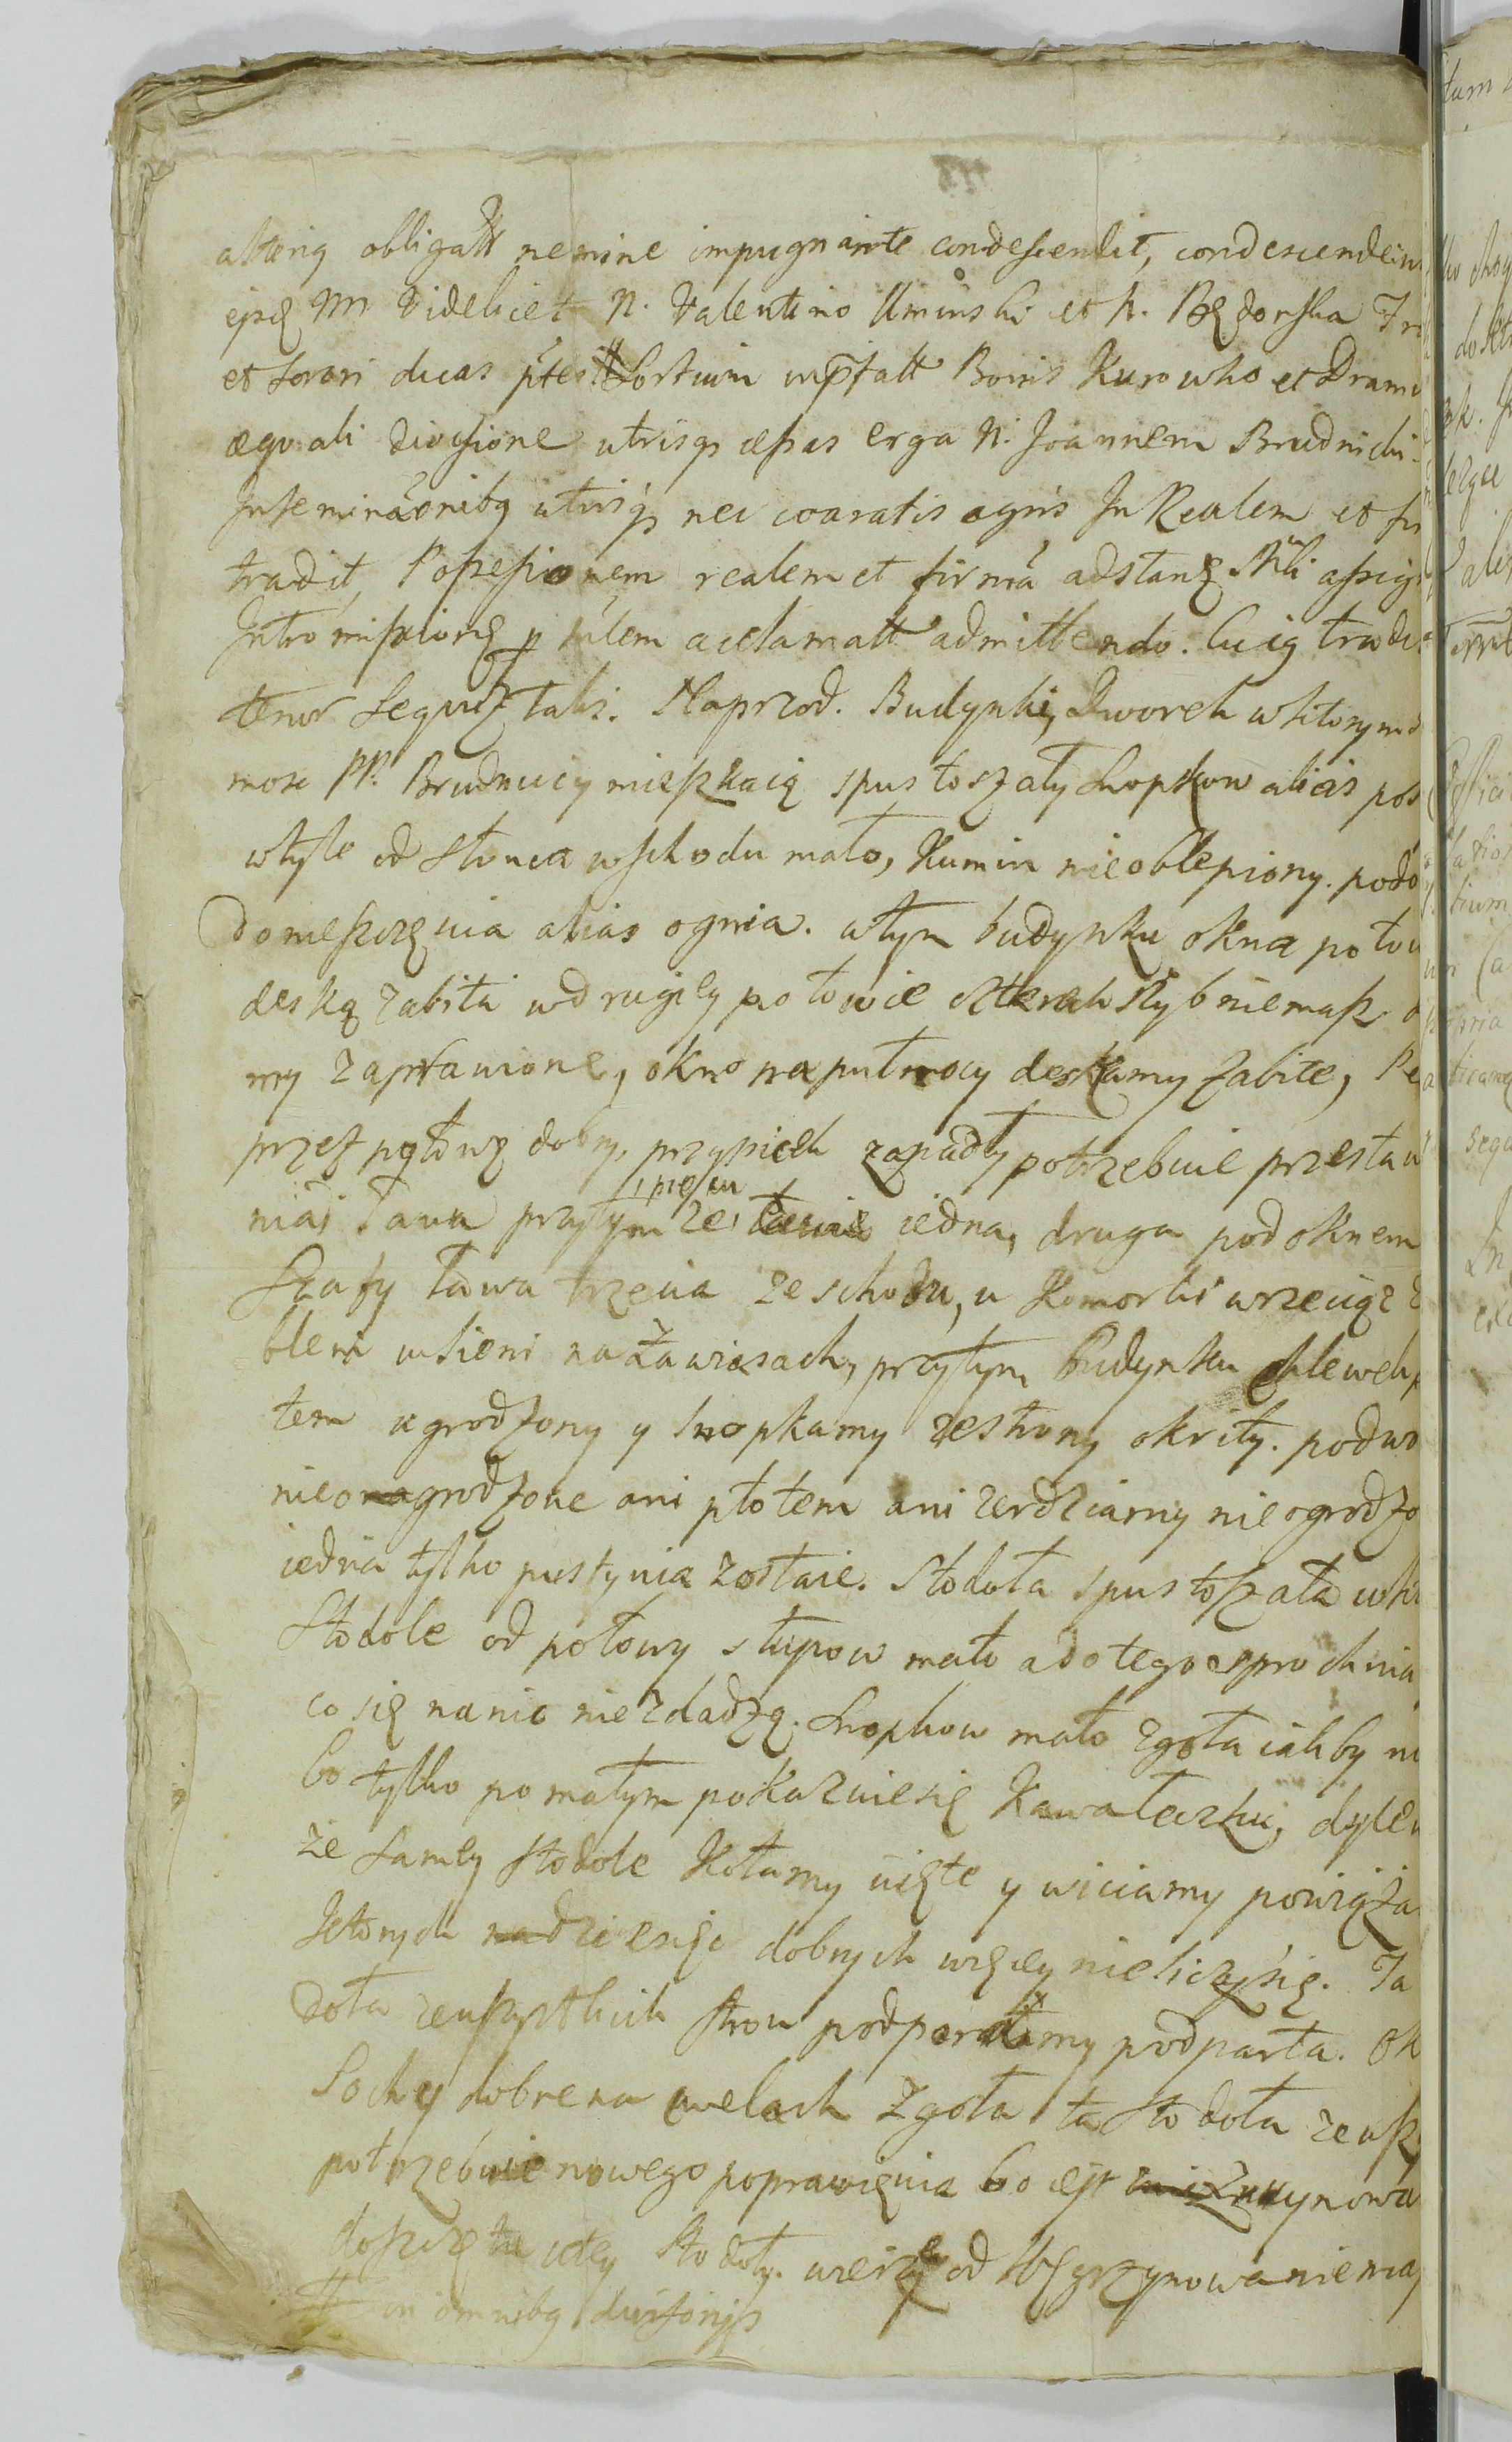 alteriq obligatt nemine impugnante condescendit, condescenden
ejsq M videlicet N. Valentino Uminski et N. Będorska
et sorori duas ptes Sortium inptatt Bonis Kurowko et Dram
æquali divisione utrisq cessas erga N. Joannem Brudnicki
Inseminaonibq utrisq nec coaratis agris In Realem et
tradit, Possessionem realem et firma adstanq Mli assig
Intromissionq p mlem acclamatt admittendo. Cuiq tradi
tenor sequiz talis. Naprzod. Budynki, Dworek wktorym
mosc PP. Brudniccy mieszkaią spustoszały Snopkow alias pos
wtyle od słonca wschodu mało, Kumin nieoblepiony. podo
doniesczęnia alias ognia. wtym budynku okna połow
deską zabita wdrugiey połowie szterech szyb niemasz
my zaprawione, okno napułnocy deskamy zabite, Pe
przez połowę dobry, przypiek zapadły potrzebuie przestaw
nia, Ława przytym ipiecu iedna, druga pod oknem
Szafy ława trzecia ze schodu, u Komorki wrzeciąz
blem wsieni nazawiasach, przytym Budynku chlewek
tem ugrodzony y snopkamy zestrony okrity. podwo
nieonagrodzone ani płotem ani zerdziamy nieogrodzo
iedna tylko pustynia zostaie. Stodoła spustoszała wkt
Stodole od połowy słupow mało adotego sprochnia
cosię nanic niezdadzą. Snopkow mało zgoła iakby ni
bo tylko pomałym pokazuiesię Kawałeczku, dylen
ze samey stodole Kołamy cięte y wiciamy powiąza
Ktorych nadziesięc dobrych więcey nieliczysię. Ta
doła zewszystkich stron podporamy podparta. Ok
Sochy dobre na welach zgoła ta Stodoła zewsz
potrzebuie nowego poprawięnia bo iest zruynowa
doszczętu utey Stodoły. wierzey od Wgrzynowa niemasz
in omnibq divisonis